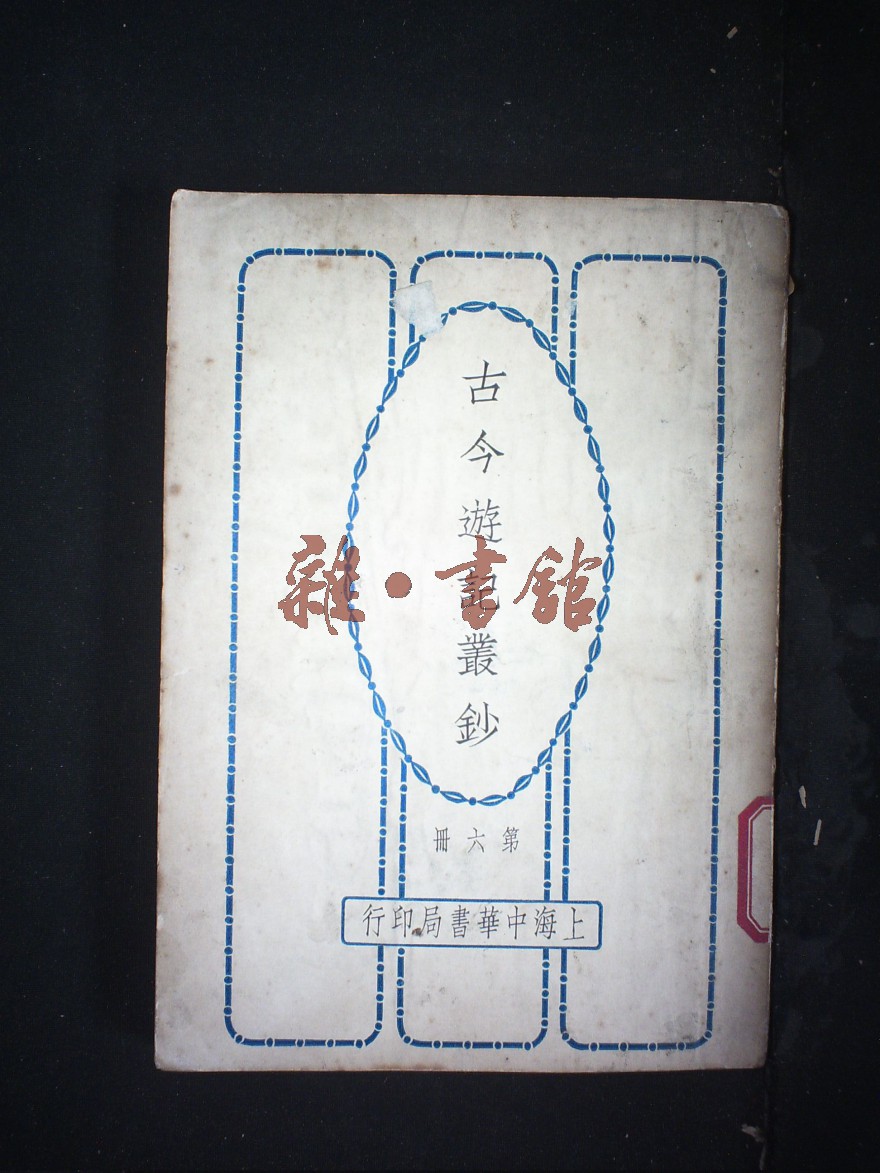 古今遊記叢鈔
雜·書館
第六冊
上海中華書局印行